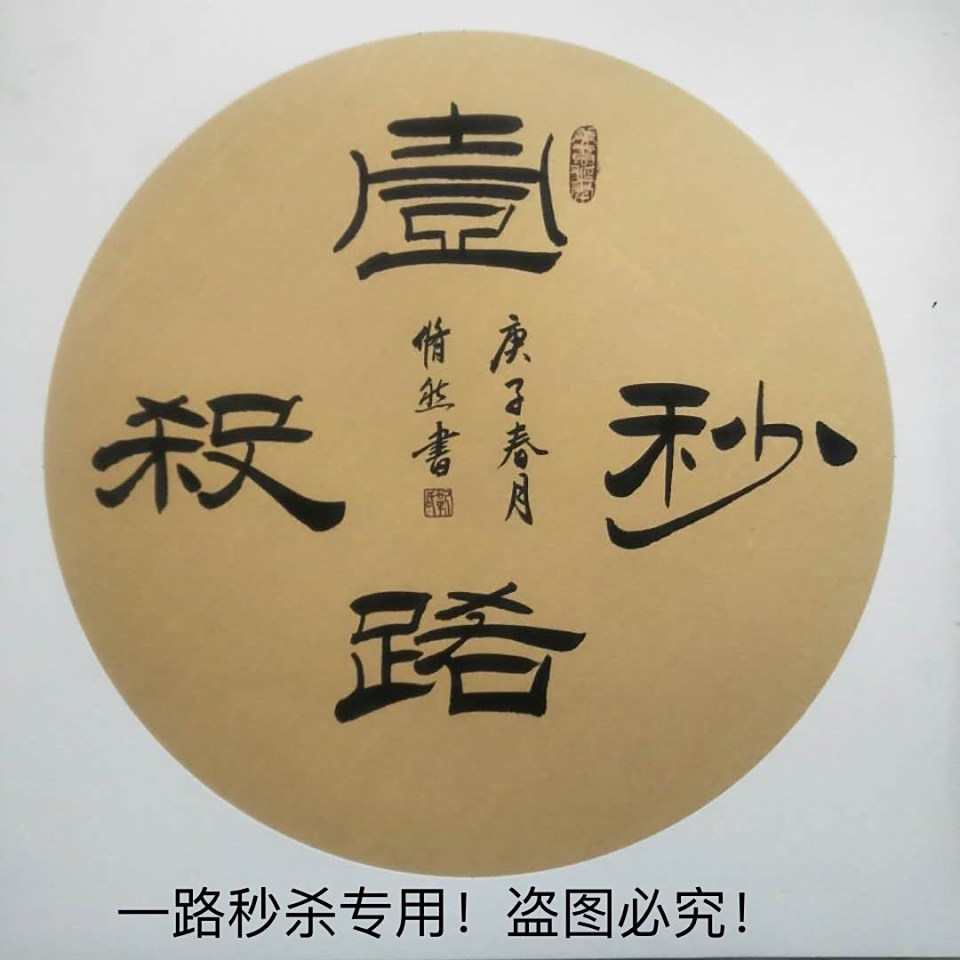 壹
路
秒
殺
庚子春月
脩然書
一路秒杀专用！盗图必究！